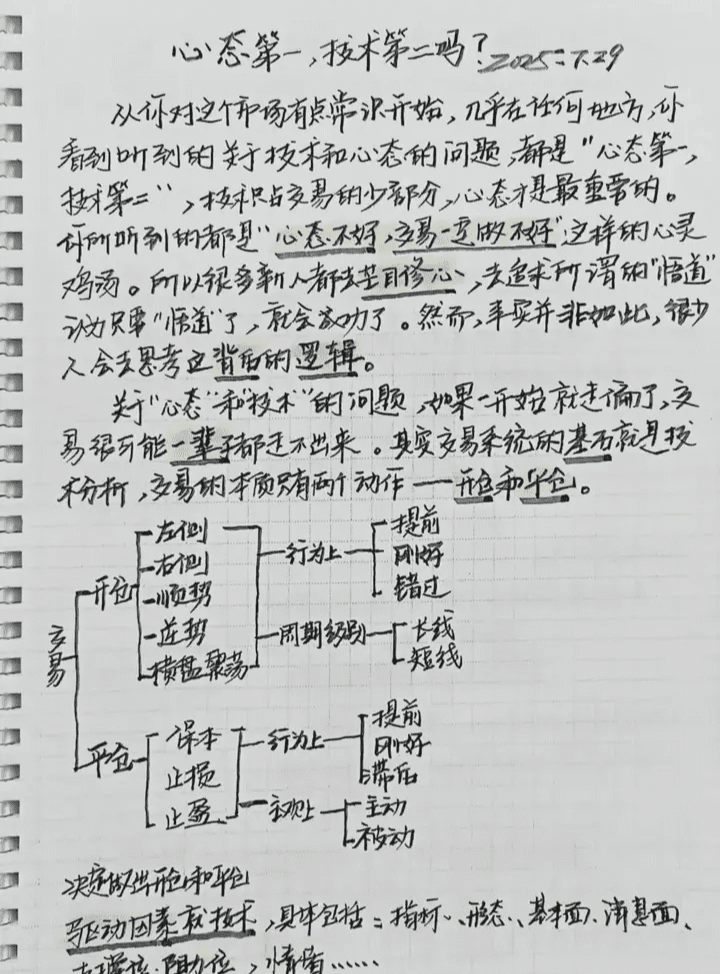 心态第一,技术第二吗? 2025.7.29
从你对这个市场有点常识开始,几乎在任何地方,你
看到听到的关于技术和心态的问题,都是"心态第一,
技术第二",技术只占交易的少部分,心态才是最重要的。
你所听到的都是"心态不好,交易一定做不好"这样的心灵
鸡汤。所以很多新人都去盲目修心,去追求所谓的"悟道"
认为只要"悟道"了,就会成功了。然而,事实并非如此,很少
人会去思考这背后的逻辑。
关于"心态"和"技术"的问题,如果一开始就走偏了,交
易很可能一辈子都走不出来。其实交易系统的基石就是技
术分析,交易的本质只有两个动作——开仓和平仓。
交易
开仓
左侧
右侧
顺势
逆势
横盘震荡
行为上
提前
刚好
错过
周期级别
长线
短线
平仓
保本
止损
止盈
行为上
提前
刚好
滞后
主观上
主动
被动
决定做出开仓和平仓
驱动因素就技术,具体包括:指标、形态、基本面、消息面、
阻力位,情绪……